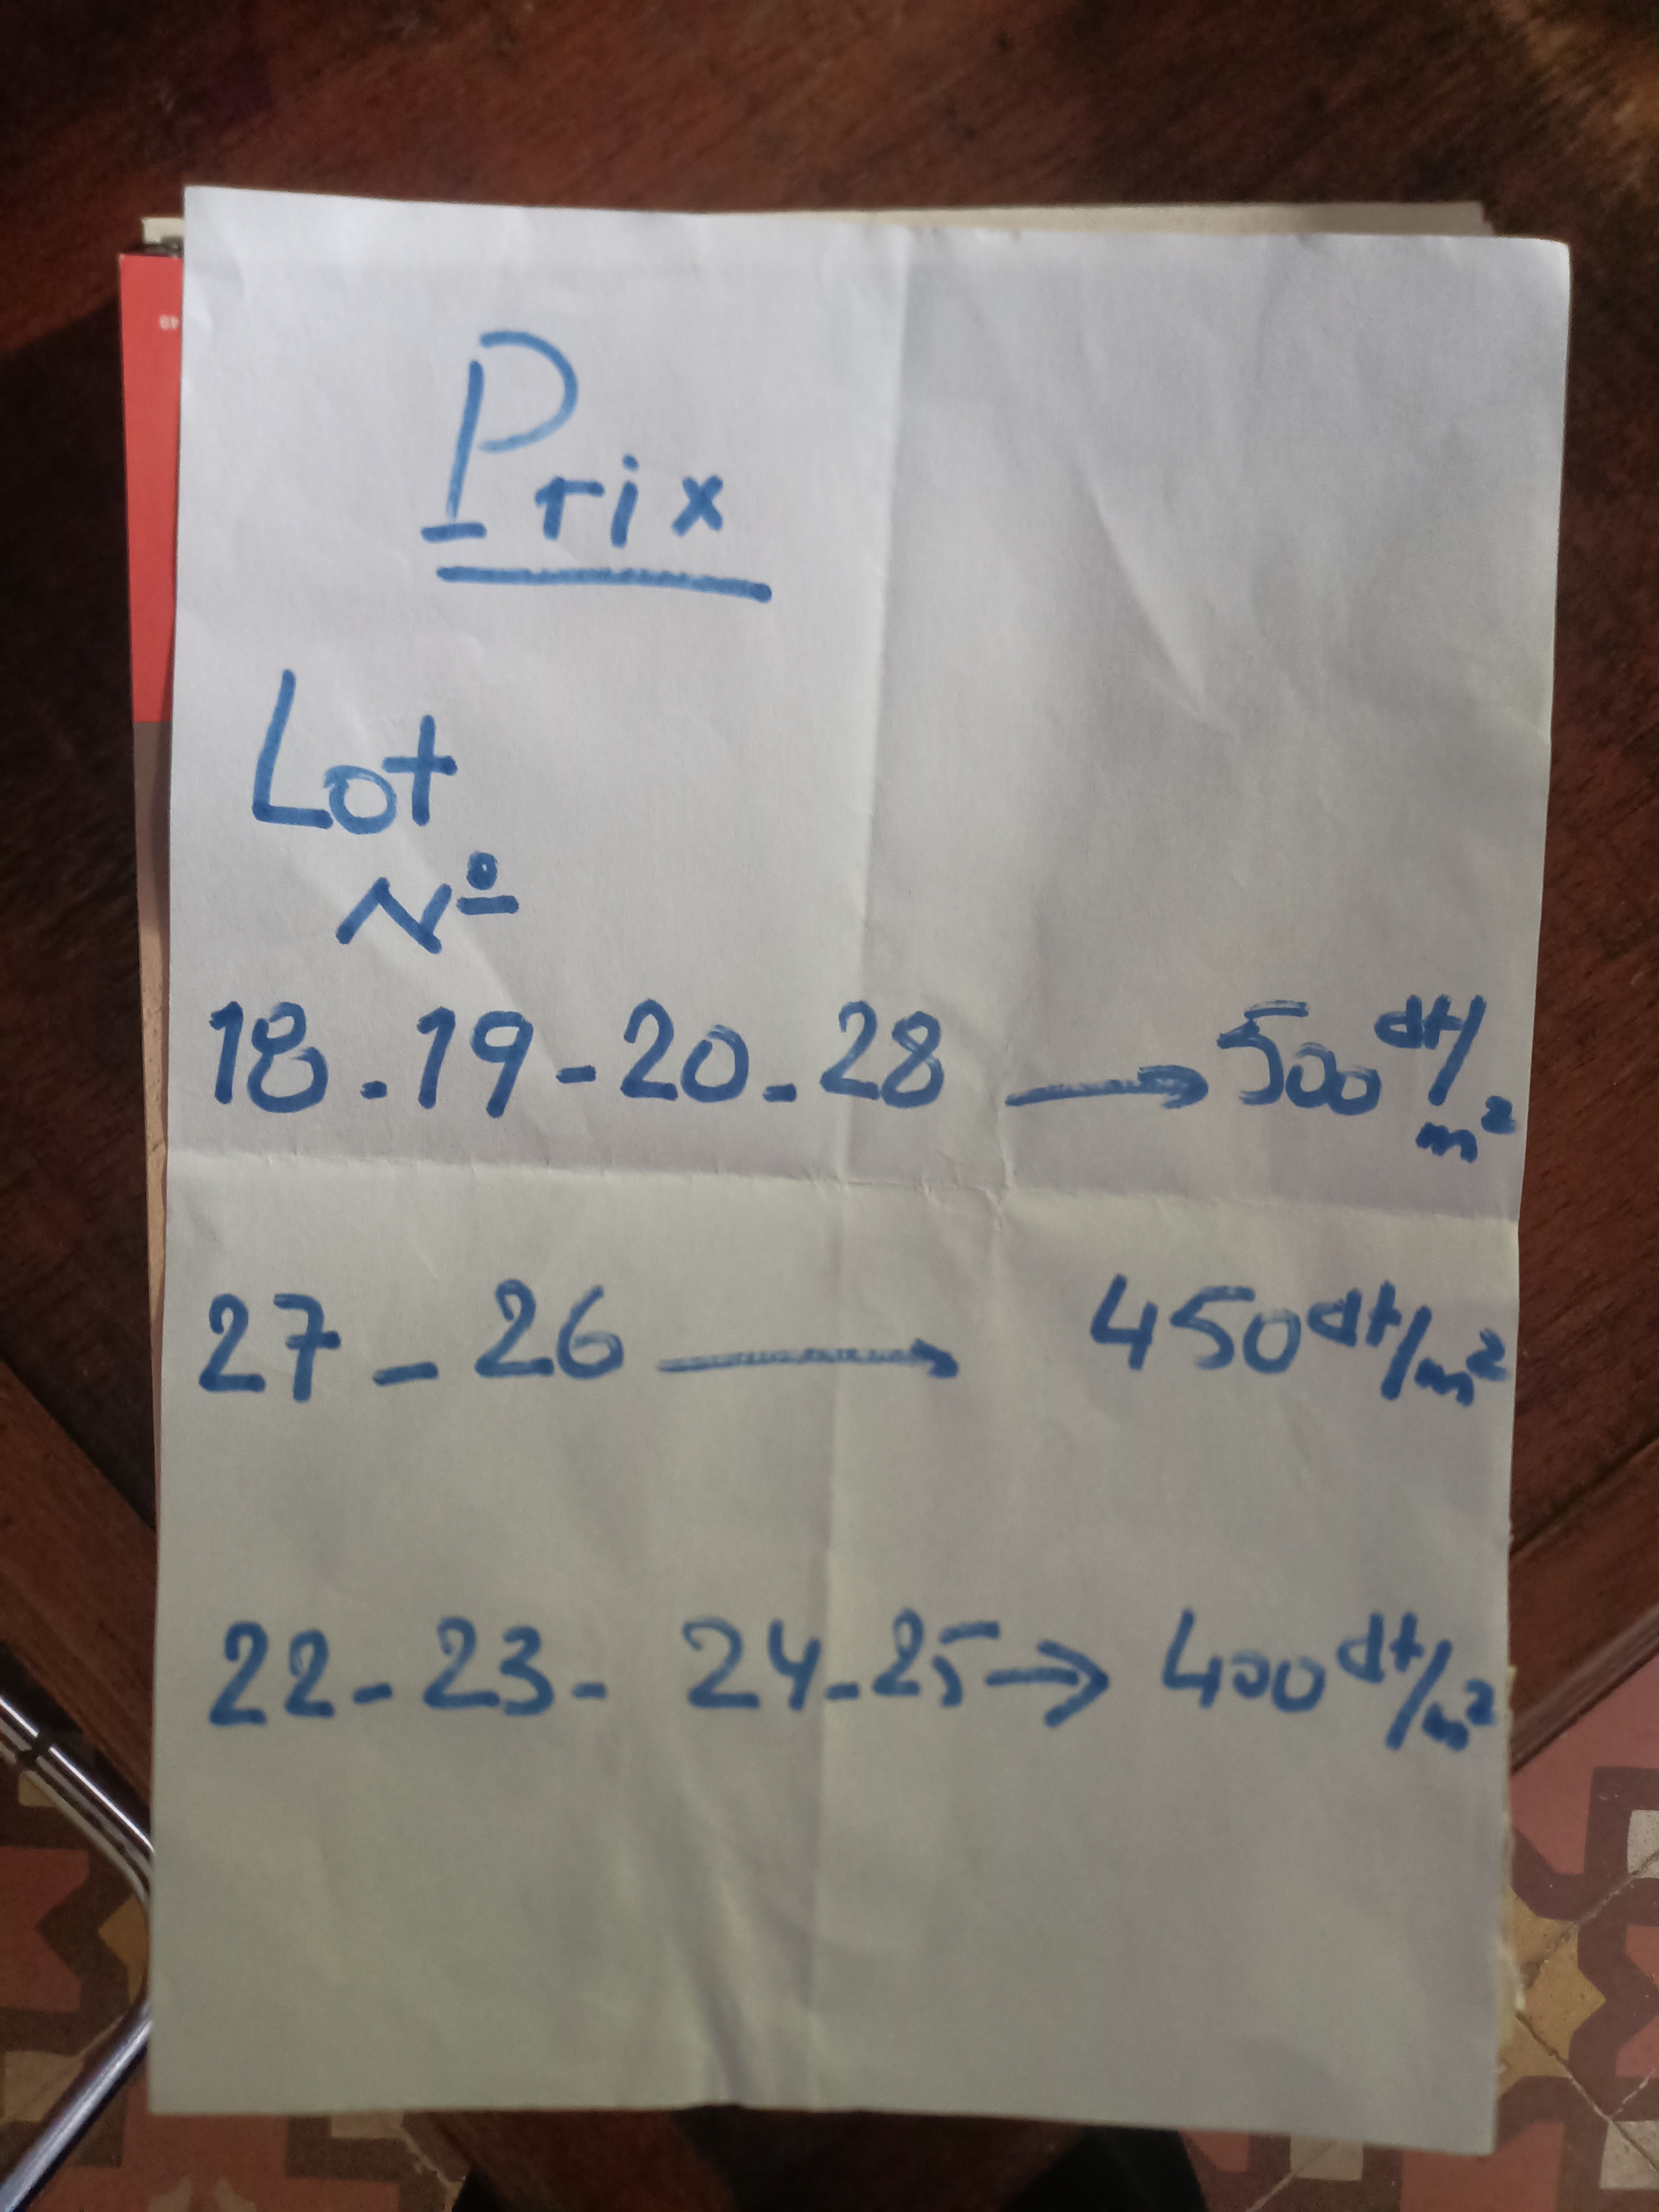 Prix
Lot
Nº
18 - 19 - 20 - 28 → 500 dt/m²
27 - 26 → 450 dt/m²
22 - 23 - 24 - 25 → 400 dt/m²
49